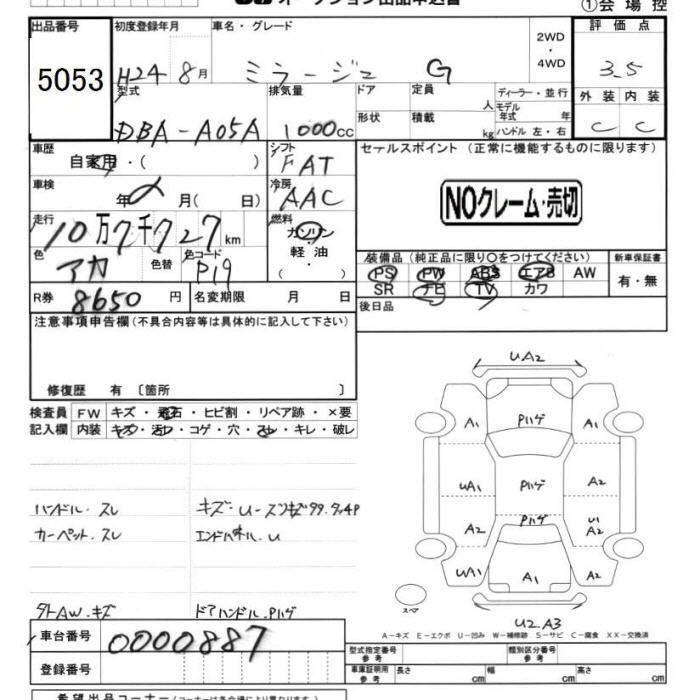 オークション出品申込書
①会場控
出品番号 初度登録年月 車名・グレード 2WD・4WD 評価点
5053 H24 8月 ミラージュ G 3.5
型式 排気量 ドア 定員 人 ディーラー・並行 外装 内装
DBA-A05A 1000cc 形状 積載 kg モデル年式 年 ハンドル 左・右 C C
車歴 自家用・( ) シフト FAT セールスポイント (正常に機能するものに限ります)
車検 年 月( 日) 冷房 AAC NOクレーム・売切
走行 10万7千727km 燃料 ガソリン・軽油 ( ・ )
色 アカ 色替 色コード P19 装備品(純正品に限り○をつけてください) 新車保証書
PS PW ABS エアB AW 有・無
SR ナビ TV カワ
R券 8650円 名変期限 月 日 後日品
注意事項申告欄(不具合内容等は具体的に記入して下さい)
修復歴 有 〔箇所 〕
検査員 FW キズ・飛石・ヒビ割・リペア跡・×要
記入欄 内装 キズ・汚レ・コゲ・穴・スレ・キレ・破レ
ハンドル.スレ
カーペット.スレ エンドパネル.U
外AW.キズ ドアハンドル.Pハゲ
UA2
A1 Pハゲ A1
UA1 Pハゲ A2
A2 Pハゲ A2
UA1 A1 A2
スペア
U2.A3
A−キズ E−エクボ U−凹み W−補修跡 S−サビ C−腐食 XX−交換済
車台番号 0000887 型式指定番号 参考 類別区分番号 参考
登録番号 車庫証明用 参考 長さ cm 幅 cm 高さ cm
希望出品コーナー(コーナーは各会場により異なります)